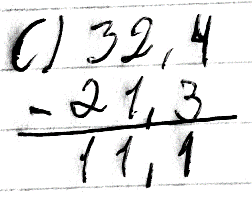 c) 32,4
- 21,3
11,1